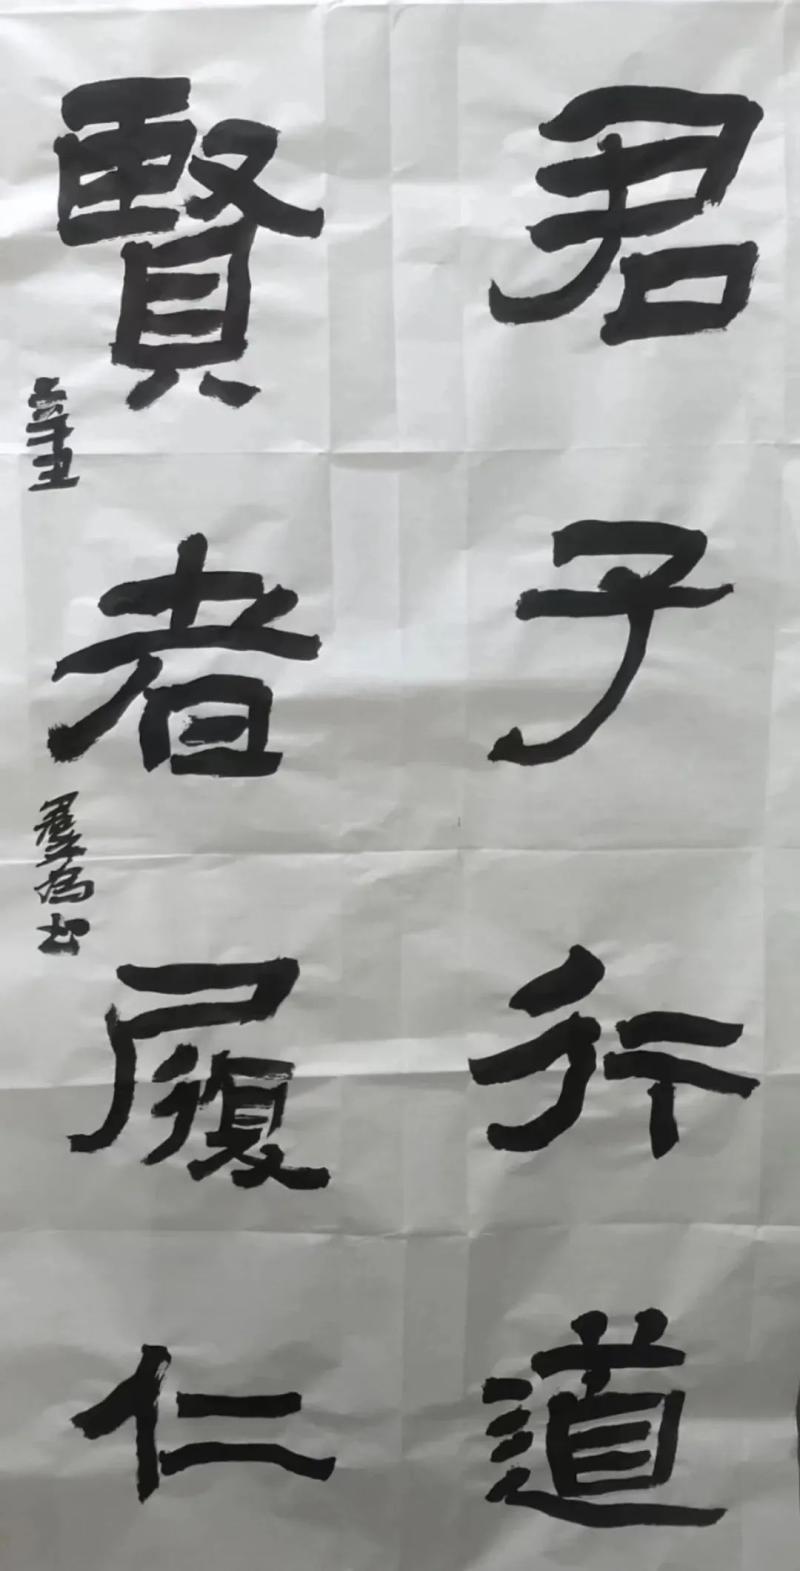 君子行道
賢者履仁
辛丑